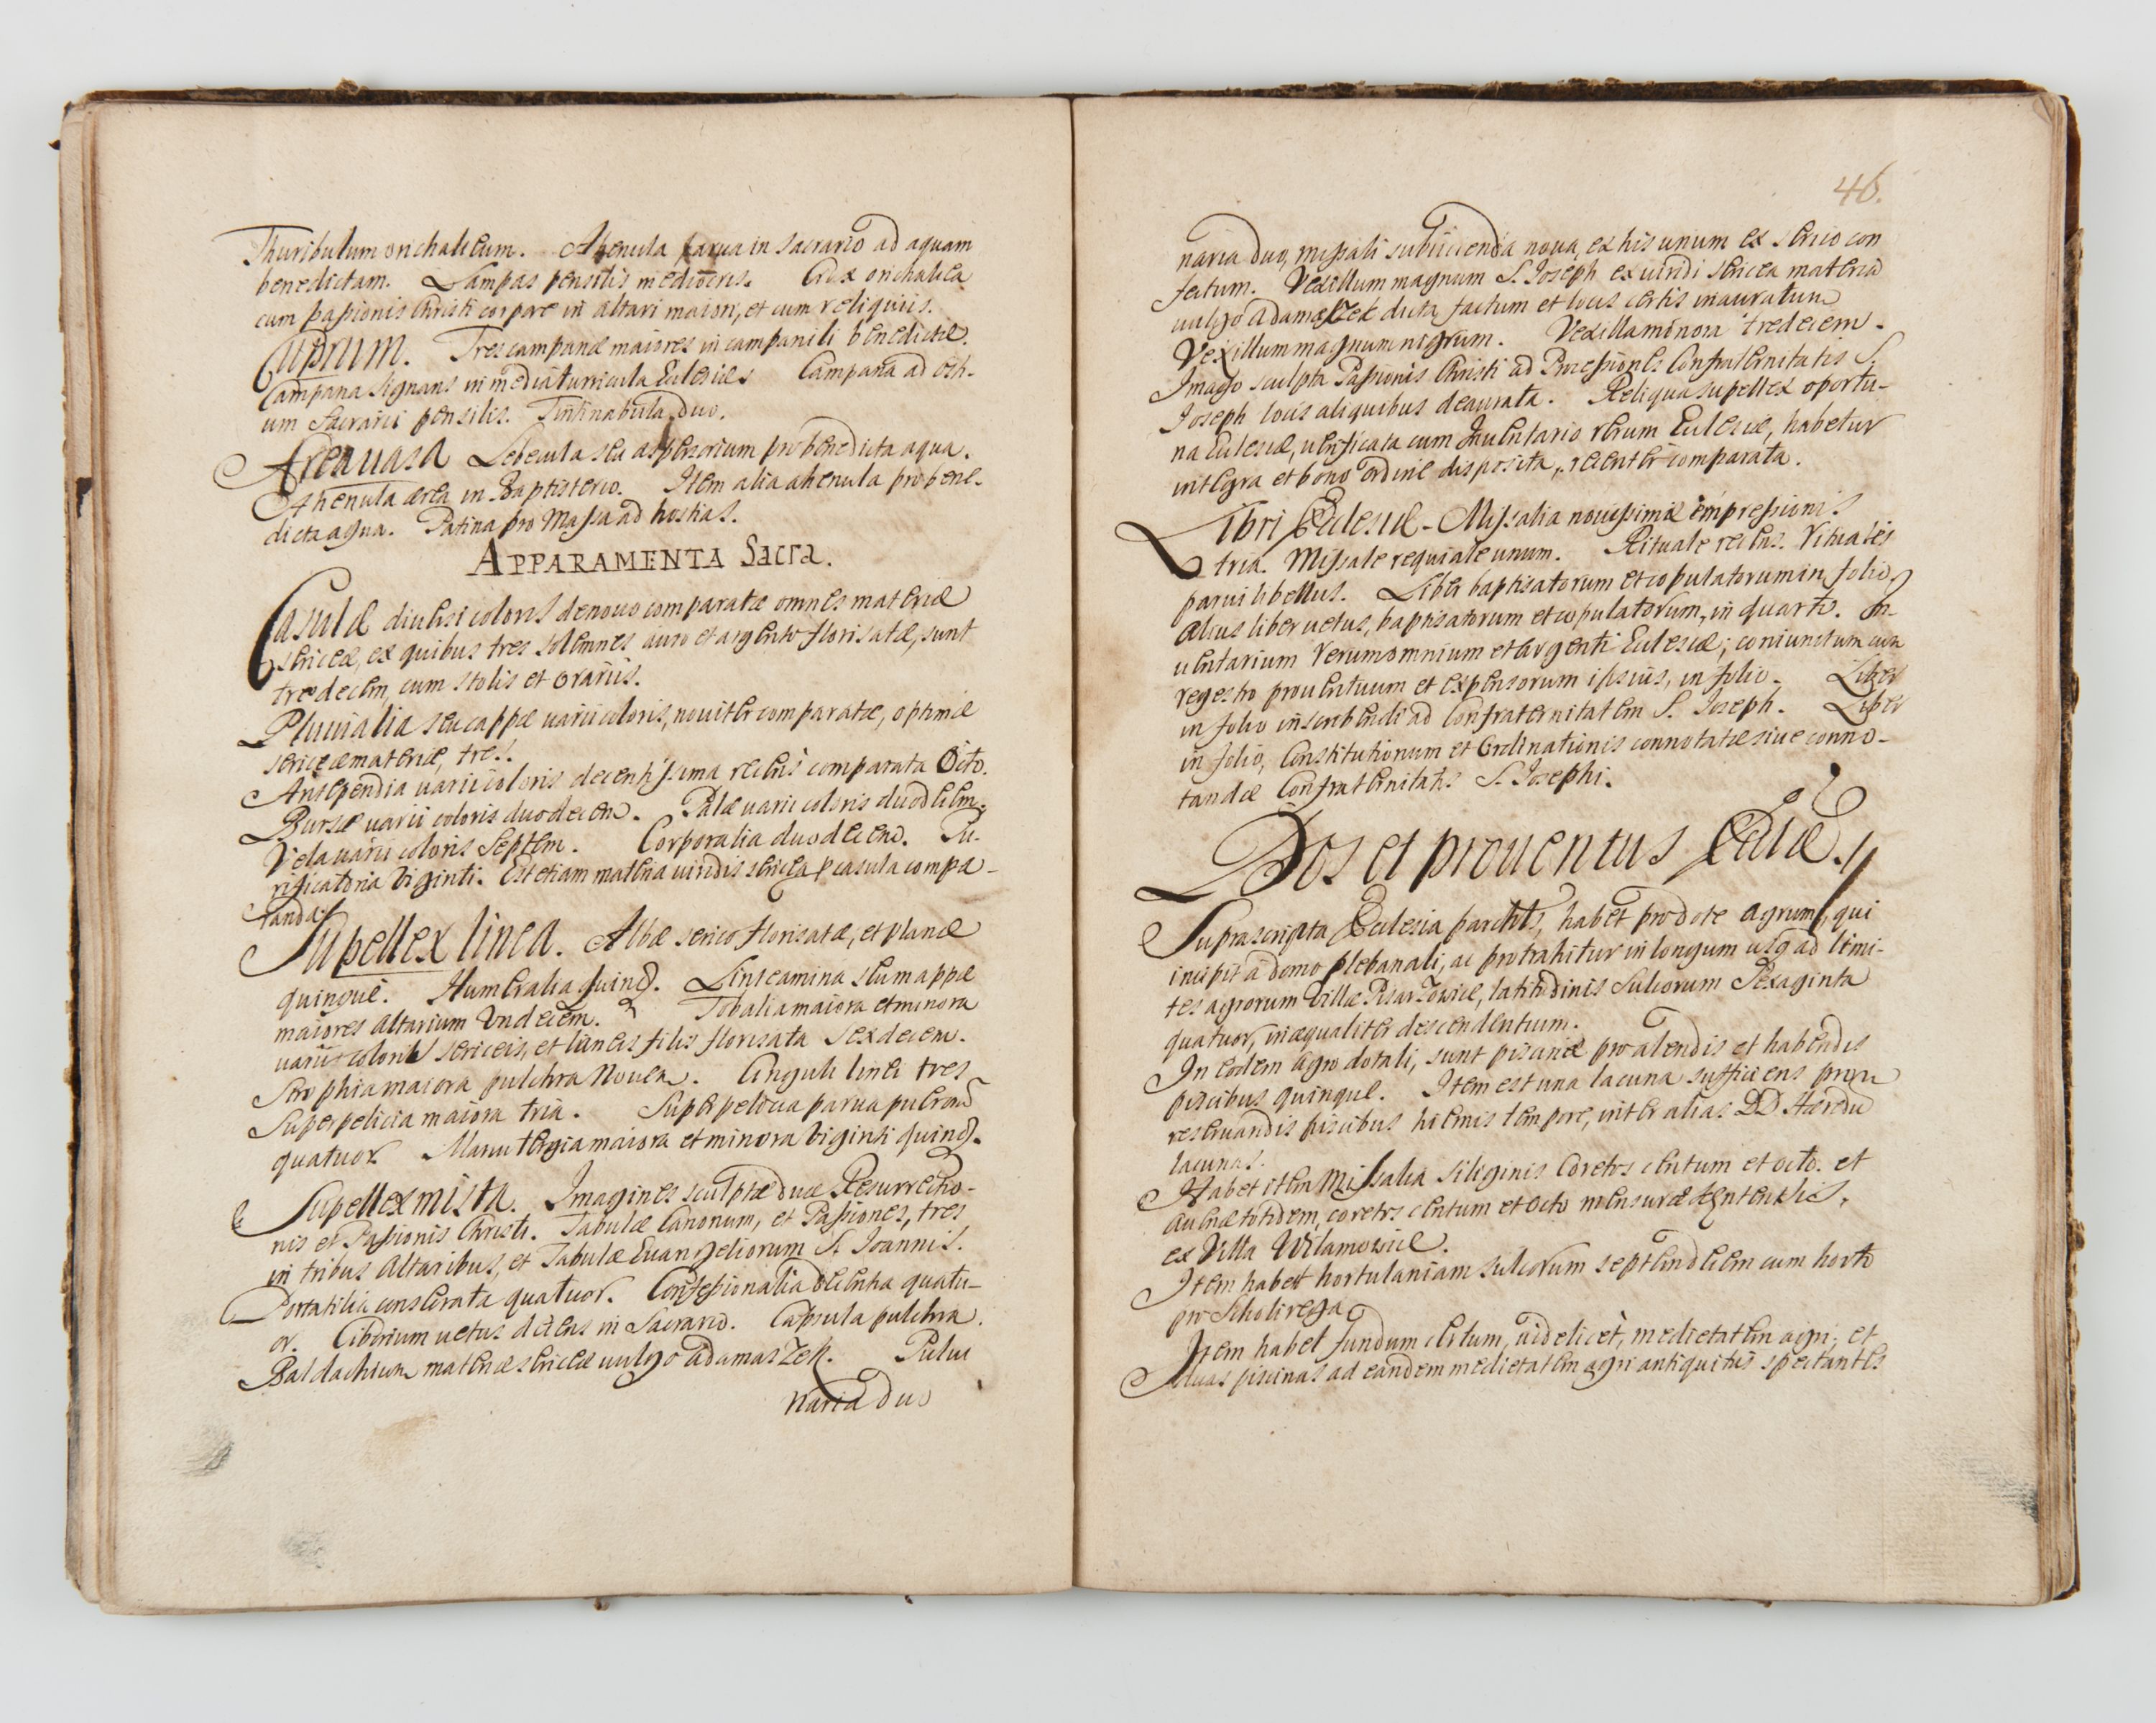 Thuribulum orichalceum. Ahenula parua in Sacrario ad aquam
benedictam. Lampas pensilis mediocris. Crux orichalcea
cum passionis Christi corpore in altari maiori, et cum reliquiis.
Cuprum. Tres campanæ maiores in campanili benedictæ.
Campana signans in media turricula Ecclesiæ Campana ad osti-
um Sacrarii pensilis. Tintinabula duo.
Area uasa Lebecula seu aspersorium pro benedicta aqua.
Ahenula ærea in Baptisterio. Item alia ahenula pro bene-
dicta aqua. Patina pro Massa ad hostias.
APPARAMENTA Sacra.
Casulæ diuersi coloris denouo comparatæ omnes materiæ
sericeæ, ex quibus tres solemnes auro et argento florisatæ, sunt
tredecem, cum stolis et orariis.
Pluuialia seu cappæ uarii coloris, nouiter comparatæ, optimæ
sericeæ materiæ, tres.
Antependia uarii coloris decentissima recens comparata Octo.
Bursæ uarii coloris duodecem. Palæ uarii coloris duodecem.
Vela uarii coloris Septem. Corporalia duodecem. Pu-
rificatoria Viginti. Est etiam materia uiridis sericea p casula compa-
randa.
Supellex linea. Albæ serico florisatæ, et planæ
quinque. Humeralia quinq. Linteamina seu mappæ
maiores Altarium Vndecem. Tobalia maiora et minora
uarii coloris sericeis, et lineis filis florisata Sexdecem.
Strophia maiora pulchra Nouem. Cinguli linei tres
Superpelicia maiora tria. Superpelicia parua puerorum
quatuor. Manutergia maiora et minora Viginti quinq.
Supellex mista. Imagines sculptæ duæ Resurrectio-
nis et Passionis Christi. Tabulæ Canonum, et Passiones, tres
in tribus Altaribus, et Tabulæ Euangeliorum S. Ioannis.
Portatilia conscrata quatuor. Confessionalia decentia quatu-
or. Ciborium uetus decens in Sacrario. Capsula pulchra.
Baldachium materiæ sericeæ uulgo adamaszek. Pului
naria duo
46.
naria duo, missali subiicienda noua, ex his unum ex serico con
fectum. Vexillum magnum S. Ioseph ex uiridi sericea materia
uulgo adamaszek dicta factum et locis certis inauratum
Vexillum magnum nigrum. Vexilla minora tredecem.
Imago sculpta Passionis Christi ad Processiones Confraternitatis S.
Ioseph locis aliquibus deaurata. Reliqua supellex oportu-
na Ecclesiæ, uerificata cum Inuentario rerum Ecclesiæ, habetur
integra et bono ordine disposita, recenter comparata.
Libri Ecclesiæ - Missalia nouissimæ impressionis
tria. Missale requiale unum. Rituale recens. Rituales
parui libellus. Liber baptisatorum et copulatorum in folio
Alius liber uetus, baptisatorum et copulatorum, in quarto. In-
uentarium rerum omnium et argenti Ecclesiæ; coniunctum cum
regestro prouentuum et expensorum ipsius, in folio. Liber
in folio inscribendi ad Confraternitatem S. Ioseph. Liber
in folio, Constitutionum et Ordinationis connotatæ siue conno-
tandæ Confraternitatis S. Iosephi.
Dos et prouentus Ecclæ.
Suprascripta Ecclesia parchlis, habet pro dote agrum, qui
incipit a domo plebanali, ac protrahitur in longum usq ad limi-
tes agrorum Villæ Pisarzowice, latitudinis Sulcorum Sexaginta
quatuor, inæqualiter descendentium.
In eodem agro dotali, sunt piscinæ pro alendis et habendis
piscibus quinque. Item est una lacuna sufficiens pro
reseruandis piscibus hiemis tempore, inter alias DD Hæredu
lacunas.
Habet item Missalia siliginis Coretos centum et octo. et
Auenæ totidem, coretos centum et octo mensuræ
ex Villa Wilamowice.
Item habet hortulaniam sulcorum septendecem cum horto
pro Scholirega
Item habet fundum certum, uidelicet, medietatem agri; et
duas piscinas ad eandem medietatem agri antiquitus spectantes